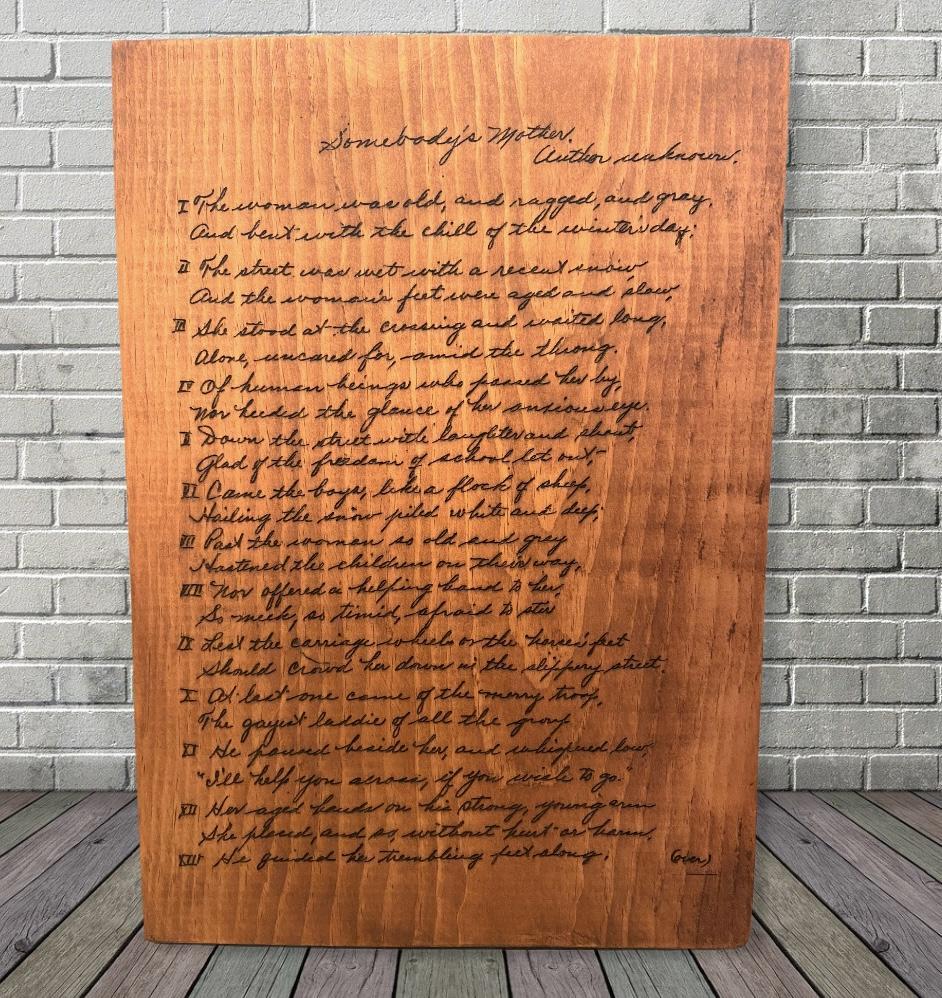 Somebody's Mother.
Author unknown.
I The woman was old, and ragged, and gray,
And bent with the chill of the winter's day;
II The street was wet with a recent snow,
And the woman's feet were aged and slow,
III She stood at the crossing and waited long,
Alone, uncared for, amid the throng.
IV Of human beings who passed her by,
Nor heeded the glance of her anxious eye.
V Down the street with laughter and shout,
Glad of the freedom of school let out,-
VI Came the boys, like a flock of sheep,
Hailing the snow piled white and deep;
VII Past the woman so old and gray
Hastened the children on their way,
VIII Nor offered a helping hand to her,
So meek, so timid, afraid to stir
IX Lest the carriage wheels or the horse's feet
Should crowd her down in the slippery street.
X At last one came of the merry troop,
The gayest laddie of all the group
XI He paused beside her, and whispered low,
"I'll help you across, if you wish to go."
XII Her aged hands on his strong, young arm
She placed, and so, without hurt or harm,
XIV He guided her trembling feet along, (over)